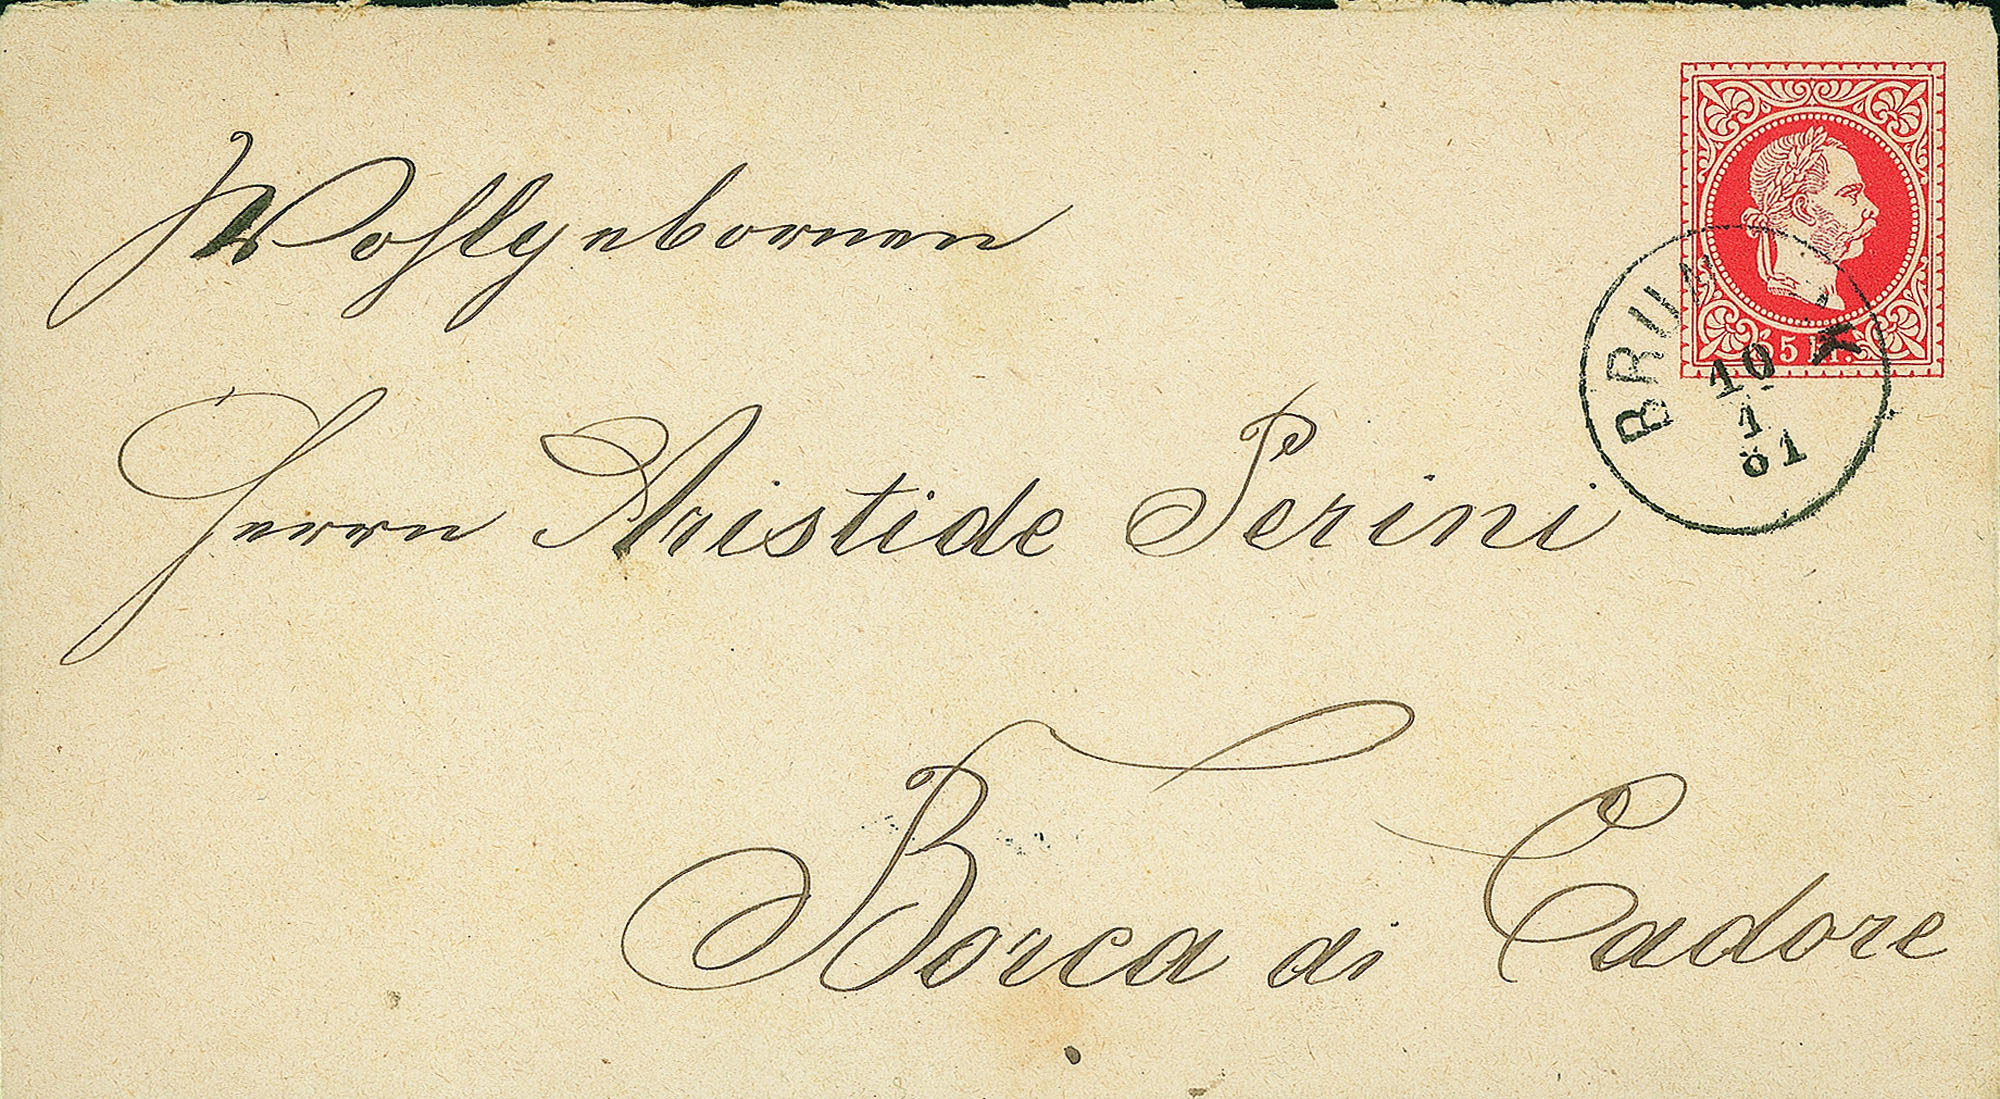 Wohlgebornen
Herrn Aristide Perini
Borca di Cadore
5 kr.
BRUNECK
10
1
81